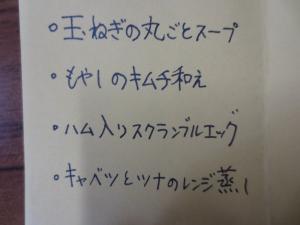 ○玉ねぎの丸ごとスープ
○もやしのキムチ和え
○ハム入りスクランブルエッグ
○キャベツとツナのレンジ蒸し